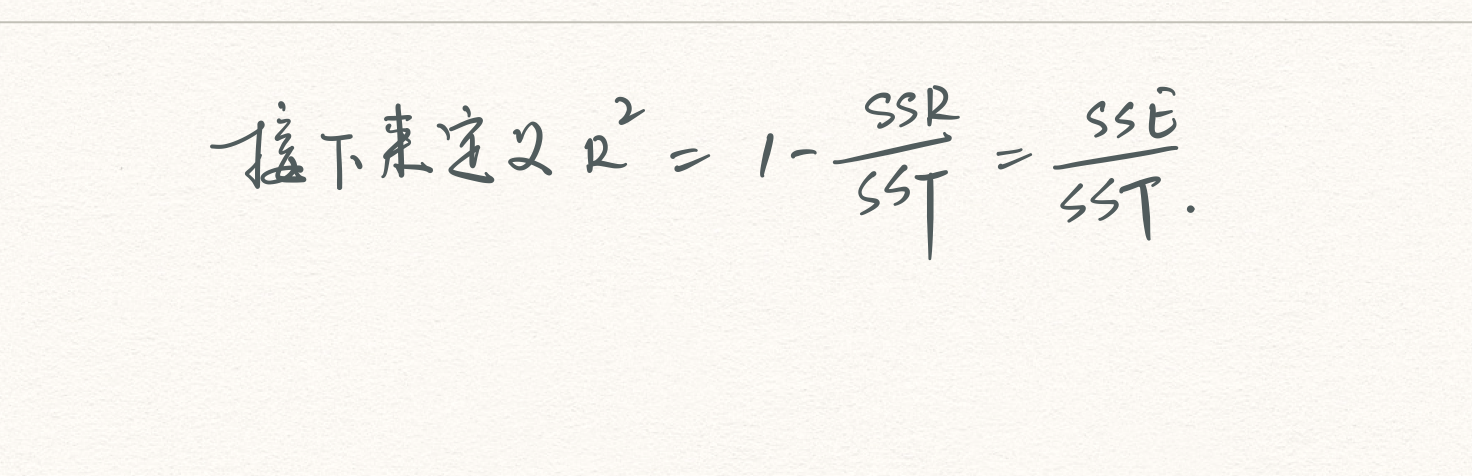 接下来定义 R² = 1 - SSR/SST = SSE/SST.